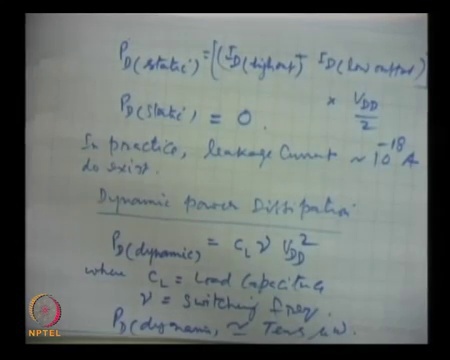 P_D(static) = [(I_D(high out) + I_D(low output)
× V_DD/2
P_D(static) = 0.
In practice, leakage current ~ 10^-18 A
do exist.
Dynamic power Dissipation
P_D(dynamic) = C_L ν V_DD^2
where C_L = Load Capacitance
ν = Switching freq.
P_D(dynamic) ≃ Tens
NPTEL